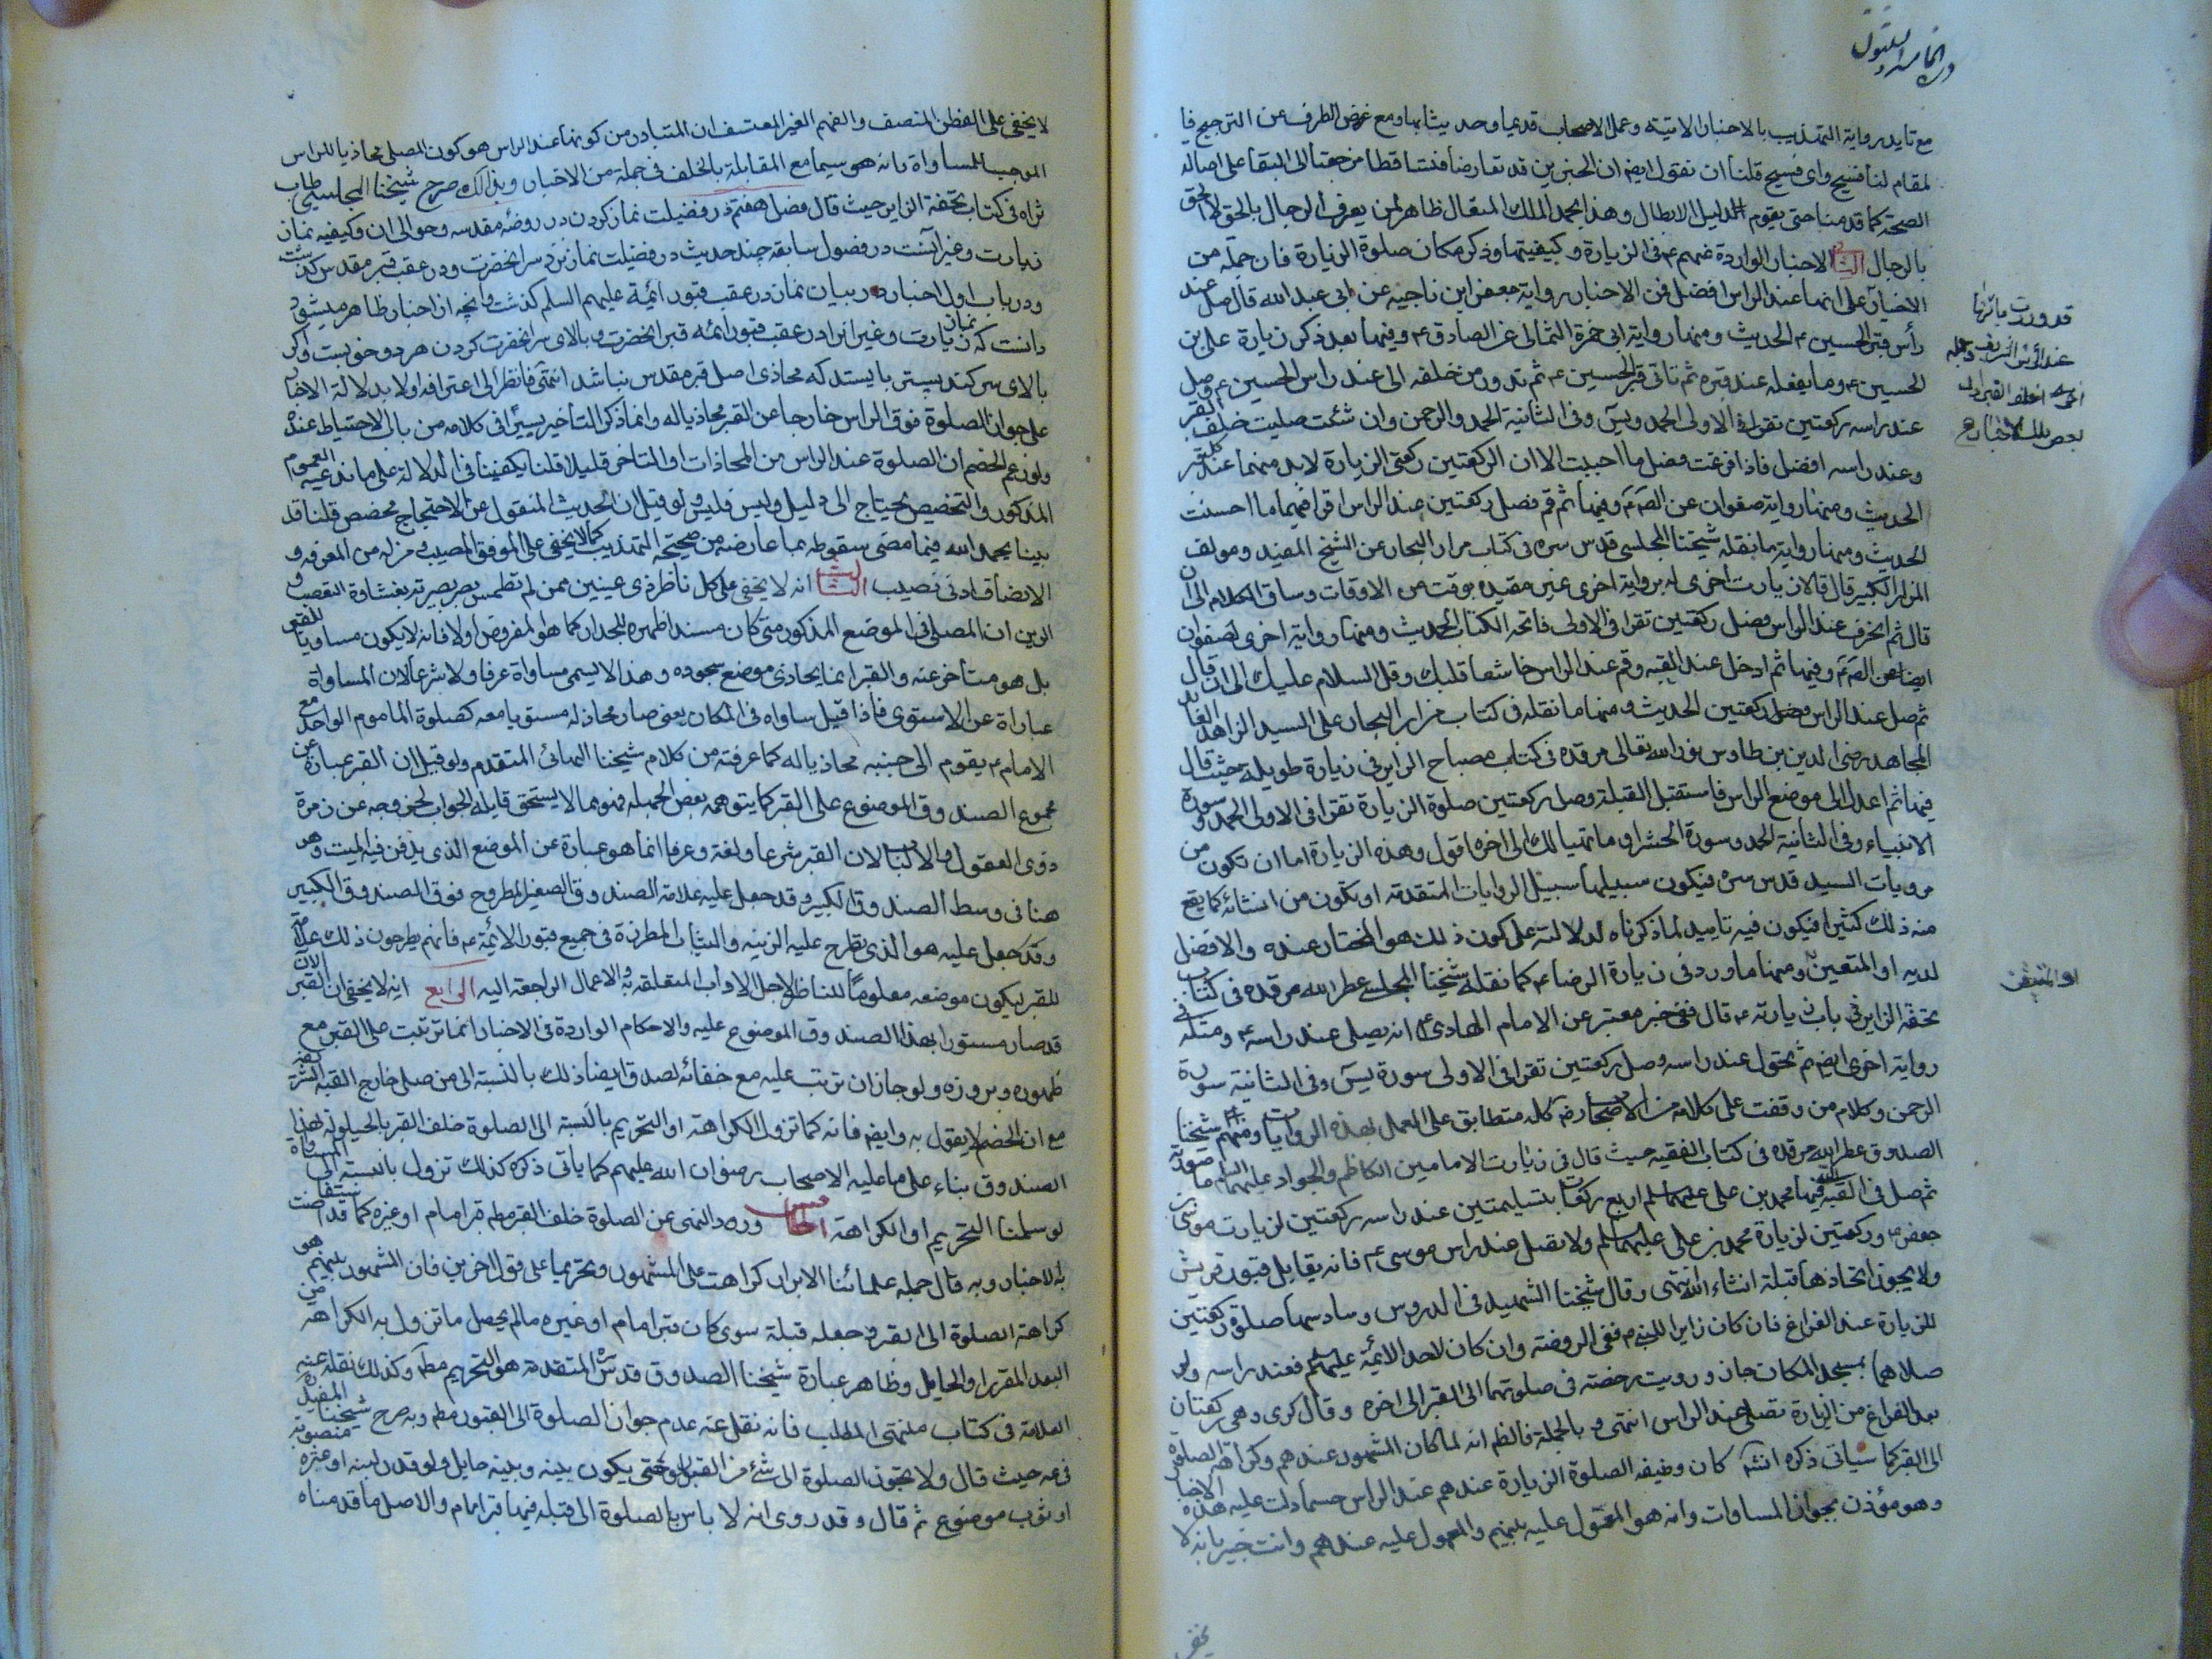 مع تايد رواية التهذيب بالاخبار الاتية وعمل الاصحاب قديما وحديثا بها ومع غض الطرف عن الترجيح فا
لمقام لنا فسيح واي فسيح قلنا ان نقول ايضا ان الخبرين قد تعارضا فتساقطا من جهتنا الى البقا على اصالة
الصحة كما قدمنا حتى يقوم الدليل الابطال وهذا بحمد الملك المتعال ظاهر لمن يعرف الرجال بالحق لا الحق
بالرجال الثاني الاخبار الواردة عنهم ع في الزيارة وكيفيتها وذكر مكان صلوة الزيارة فان جملة من
الاخبار على انها عند الراس افضل فمن الاخبار رواية جعفر ابن ناجيه عن ابي عبد الله قال صل عند
رأس قبر الحسين ع الحديث ومنها رواية ابي حمزة الثمالي عن الصادق ع وفيها بعد ذكر زيارة على بن
الحسين ع وما يفعله عند قبره ثم تاتي قبر الحسين ع ثم تدور من خلفه الى عند راس الحسين ع وصل
عند راسه ركعتين تقرا في الاولى الحمد ويس وفي الثانية الحمد والرحمن وان شئت صليت خلف القبر
وعند راسه افضل فاذا فرغت فصل ما احببت الا ان الركعتين ركعتي الزيارة لابد منهما عند كل قبر
الحديث ومنها رواية صفوان عن الص ع وفيها ثم قم فصل ركعتين عند الراس اقرا فيهما ما احسنت
الحديث ومنها رواية ما نقله شيخنا المجلسي قدس سره في كتاب مزار البحار عن الشيخ المفيد ومولف
المزار الكبير قال قالا زيارت اخرى له برواية اخرى غير مقيده بوقت من الاوقات وساق الكلام الى ان
قال ثم انحرف عند الراس فصل ركعتين تقرا في الاولى فاتحة الكتاب الحديث ومنها رواية اخرى لصفوان
ايضا عن الص ع وفيها ثم ادخل عند القبه وقم عند الراس خاشعا قلبك وقل السلام عليك الى ان قال
ثم صل عند الراس فصل ركعتين الحديث ومنها ما نقله في كتاب مزار البحار على السيد الزاهد العابد
المجاهد رضي الدين بن طاوس نور الله تعالى مرقده في كتاب مصباح الزاير في زيارة طويلة حيث قال
فيها ثم اعدل الى موضع الراس فاستقبل القبلة وصل ركعتين صلوة الزيارة تقرا في الاولى الحمد وسورة
الانبياء وفي الثانية الحمد وسورة الحشر او ما تهيا لك الى اخره اقول وهذه الزيارة اما ان تكون من
مرويات السيد قدس سره فيكون سبيلها سبيل الروايات المتقدمة او يكون من انشائه كما يقع
منه ذلك كثيرا فيكون فيه تاييد لما ذكرناه لدلالته على كون ذلك هو المختار عنده والافضل
لديه او المتعين ومنها ما ورد في زيارة الرضا ع كما نقله شيخنا المجلسي عطر الله مرقده في كتاب
تحفة الزاير في باب زيارته ع قال ففي خبر معتبر عن الامام الهادي ع انه يصلى عند راسه ع ومثله في
رواية اخرى ايضا ثم تحول عند راسه وصل ركعتين تقرا في الاولى سورة يس وفي الثانية سورة
الرحمن وكلام من وقفت على كلامه من الاصحاب رض كله متطابق على العمل بهذه الروايات ومنهم شيخنا
الصدوق عطر الله مرقده في كتاب الفقيه حيث قال في زيارت الامامين الكاظم والجواد عليهما السلام ما صورته
ثم صل في القبة التي فيها محمد بن على عليهما السلم اربع ركعات بتسليمتين عند راسه ركعتين لزيارت موسى بن
جعفر ع وركعتين لزيارة محمد بن علي عليهما السلم ولا تصل عند راس موسى ع فانه يقابل قبور قريش
ولا يجوز اتخاذها قبلة انشاء الله انتهى وقال شيخنا الشهيد في الدروس وسادسها صلوة ركعتين
للزيارة عند الفراغ فان كان زايرا للنبي ص ففي الروضة وان كان لاحد الائمة عليهم السلم فعند راسه ولو
صلاهما بمسجد المكان جاز ورويت رخصة في صلوتهما الى القبر الى اخره وقال كرى وهي ركعتان
بعد الفراغ من الزيارة تصلي عند الراس انتهى وبالجملة فالظ انه لما كان المشهور عندهم وكراهة الصلوة
الى القبر كما سياتي ذكره انش كان وظيفة الصلوة الزيارة عندهم عند الراس حسما دلت عليه هذه الاخبار
وهو مؤذن بجواز المساوات وانه هو المعول عليه بينهم والمعمول عليه عندهم وانت خبير بانه لا
قد وردت
عند الرأس الشريف وجملة
لا يخفى على الفطن المنصف والفهم الغير المعتسف ان المتبادر من كونها عند الراس هو كون المصلى محاذيا للراس
الموجب للمساواة بانه هو سيما مع المقابلة بالخلف في جملة من الاخبار وبذالك صرح شيخنا المجلسي طاب
ثراه في كتاب تحفة الزاير حيث قال فصل هفتم در فضيلت نماز كردن در روضه مقدسه وحوالى ان وكيفيه نماز
زيارت وغير آنست در فصول سابقه چند حديث در فضيلت نماز نزد سر انحضرت ودر عقب قبر مقدس گذشت
ودر باب اول اخبار در بيان نماز در عقب قبور ائمة عليهم السلم گذشت وانچه از اخبار ظاهر ميشود
دانست كه نماز زيارت وغير انرا در عقب قبور ائمه قبر انحضرت وبالاى سر انحضرت كردن هر دو خوبست واگر
بالاى سر كند پستر بايستد كه محاذى اصل قبر مقدس نباشد انتهى فانظر الى اعترافه اولا بدلالة الاخبار
على جواز الصلوة فوق الراس خارجا عن القبر محاذيا له وانما ذكر التأخير يسيرا في كلامه من بالى الاحتياط عنده
ولو زعم الخصم ان الصلوة عند الراس من المحاذات او التاخر قليلا قلنا يكفينا في الدلالة على ما ندعيه العموم
المذكور والتخصيص يحتاج الى دليل وليس فليس ولو قيل ان الحديث المنقول عن الاحتجاج مخصص قلنا قد
بينا بحمد الله فيما مضى سقوطه بما عارضه من صحيحة التهذيب كما لا يخفى على الموفق المصيب ومن له من المعرفه و
الانصاف ادنى نصيب الثالث انه لا يخفى على كل ناظر ذي عينين ممن لم تطمس بصر بصيرته بغشاوة التعصب و
الرين ان المصلى في الموضع المذكور متى كان مسندا ظهره للجدار كما هو المفروض اولا فانه لا يكون مساويا للقبر
بل هو متأخر عنه والقبر انما يحاذى موضع سجوده وهذا لا يسمى مساواة عرفا ولا شرعا لان المساواة
عباراة عن الاستوى فاذا قيل ساواه في المكان يعنى صار محاذ له مستويا معه كصلوة الماموم الواحد مع
الامام ع يقوم الى جنبه محاذيا له كما عرفته من كلام شيخنا البهائى المتقدم ولو قيل ان القبر عبارة عن
مجموع الصندوق الموضوع على القبر كما يتوهمه بعض الجهله فهو مما لا يستحق قايله الجواب لخروجه عن زمرة
ذوى العقول والالباب لان القبر شرعا ولغة وعرفا انما هو عبارة عن الموضع الذي يدفن فيه الميت وهو
هنا في وسط الصندوق الكبير وقد جعل عليه علامة الصندوق الصغير المطروح فوق الصندوق الكبير
وقد جعل عليه هو الذي تطرح عليه الزينه والثياب المطرزة في جميع قبور الائمة ع فانهم يطرحون ذلك علامة
للقبر ليكون موضعه معلوما للناظر لاجل الاداب المتعلقة به والاعمال الراجعة اليه الرابع انه لا يخفى ان القبر الان
قد صار مستورا بهذا الصندوق الموضوع عليه والاحكام الواردة في الاخبار انما ترتبت على القبر مع
ظهوره وبروزه ولو جاز ان ترتب عليه مع خفائه لصدق ايضا ذلك بالنسبة الى من صلى خارج القبة الشريفة
مع ان الخصم لا يقول به وايضا فانه كما تزول الكراهة او التحريم بالنسبة الى الصلوة خلف القبر بالحيلولة بهذا
الصندوق بناء على ما عليه الاصحاب رضوان الله عليهم كما ياتى ذكره كذلك تزول بالنسبة الى المساواة
لو سلمنا التحريم او الكراهة الخامس ورود النهى عن الصلوة خلف القبر مط قبر امام او غيره كما قدمنا
بالاخبار وبه قال جملة علمائنا الابرار كراهت على المشهور وتحريما على قول اخرين فان المشهور بينهم هو
كراهة الصلوة الى القبر وجعله قبلة سوى كان قبر امام او غيره مالم يحصل ما تزول به الكراهة من
البعد المقرر او الحايل وظاهر عبارة شيخنا الصدوق قدس سره المتقدمة هو التحريم مط وكذلك نقله عنه
العلامة في كتاب منتهى المطلب فانه نقل عنه عدم جواز الصلوة الى القبور مط وبه صرح شيخنا المفيد
في عه حيث قال ولا تجوز الصلوة الى شئ من القبور حتى يكون بينه وبينه حايل ولو قدر لبنه او عنزه منصوبة
او ثوب موضوع ثم قال وقد روى انه لا باس بالصلوة الى قبلة فيها قبر امام والاصل ما قدمناه